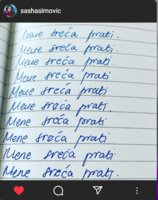 sashasimovic
Mene sreća prati.
Mene sreća prati.
Mene sreća prati.
Mene sreća prati.
Mene sreća prati.
Mene sreća prati
Mene sreća prati
Mene sreća prati
Mene sreća prati
Mene sreća prati.